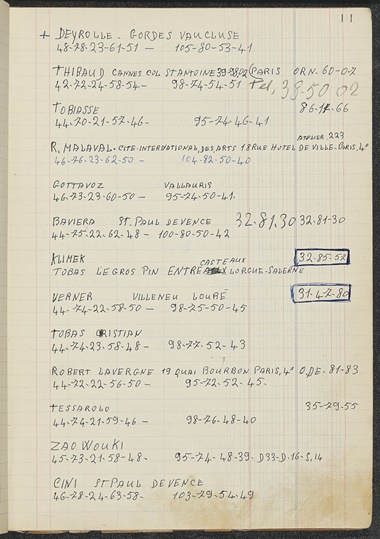 11
+ DEYROLLE. GORDES VAUCLUSE
48-78-23-61-51 — 105-80-53-41
THIBAUD CANNES COL STANTOINE 39-50,02 (PARIS ORN-60-07
42-72-24-58-54 — 98-74-54-51 Tel, 39-50 02
TOBIASSE 86-14-66
44-70-21-57-46- 95-74-46-41
ATELIER 223
R. MALAVAL. CITE-INTERNATIONAL, DES, ARTS 18 RUE HOTEL DE VILLE. PARIS, 4e
46-76-23-62-50 — 104-82-50-40
GOTTAVOZ VALLAURIS
46-73-23-60-50 — 95-74-50-41.
BAVIERA ST. PAUL DE VENCE 32.81.30 32-81-30
44-75-22-62-48 - 100-80-50-42
KLIMEK CASTEAUX 32-85-52
TOBAS LEGROS PIN ENTRE LORGUE-SALERNE
VERNER VILLENEU LOUBE 31-47-80
44-74-22-58-50 — 98-75-50-45
TOBAS CRISTIAN
44-74-23-58-48 — 98-77-52-43
ROBERT LAVERGNE 19 QUAI BOURBON PARIS, 4e ODE-81-83
44-72-22-56-50 — 95-72-52-45.
TESSAROLO 35-79-55
44-74-21-59-46 — 98-76-48-40
ZAO WOUKI
45-73-21-58-48- 95-74-48-39-D33-D-16-S,14
CINI ST PAUL DE VENCE
46-78-24-63-58- 103-79-54-49